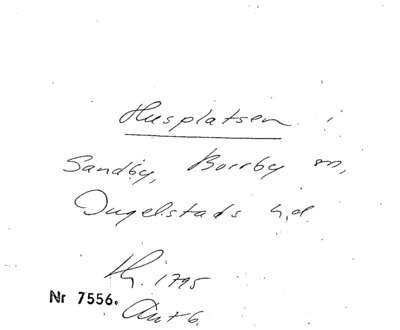 Husplatsen i
Sandby, Borrby sn,
Ingelstads h.d.
1795
Nr 7556.
Ant 6.